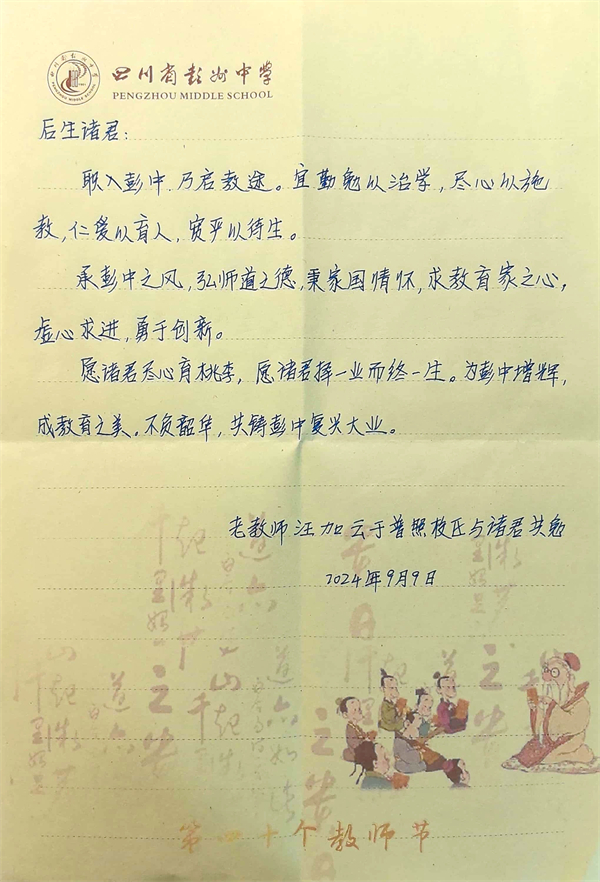 四川省彭州中学
PENGZHOU MIDDLE SCHOOL
后生诸君：
职入彭中，乃启教途。宜勤勉以治学，尽心以施
教，仁爱以育人，宽严以待生。
承彭中之风，弘师道之德，秉家国情怀，求教育家之心，
虚心求进，勇于创新。
愿诸君尽心育桃李，愿诸君择一业而终一生。为彭中增辉，
成教育之美。不负韶华，共铸彭中复兴大业。
老教师汪加云于普照校区与诸君共勉
2024年9月9日
第四十个教师节